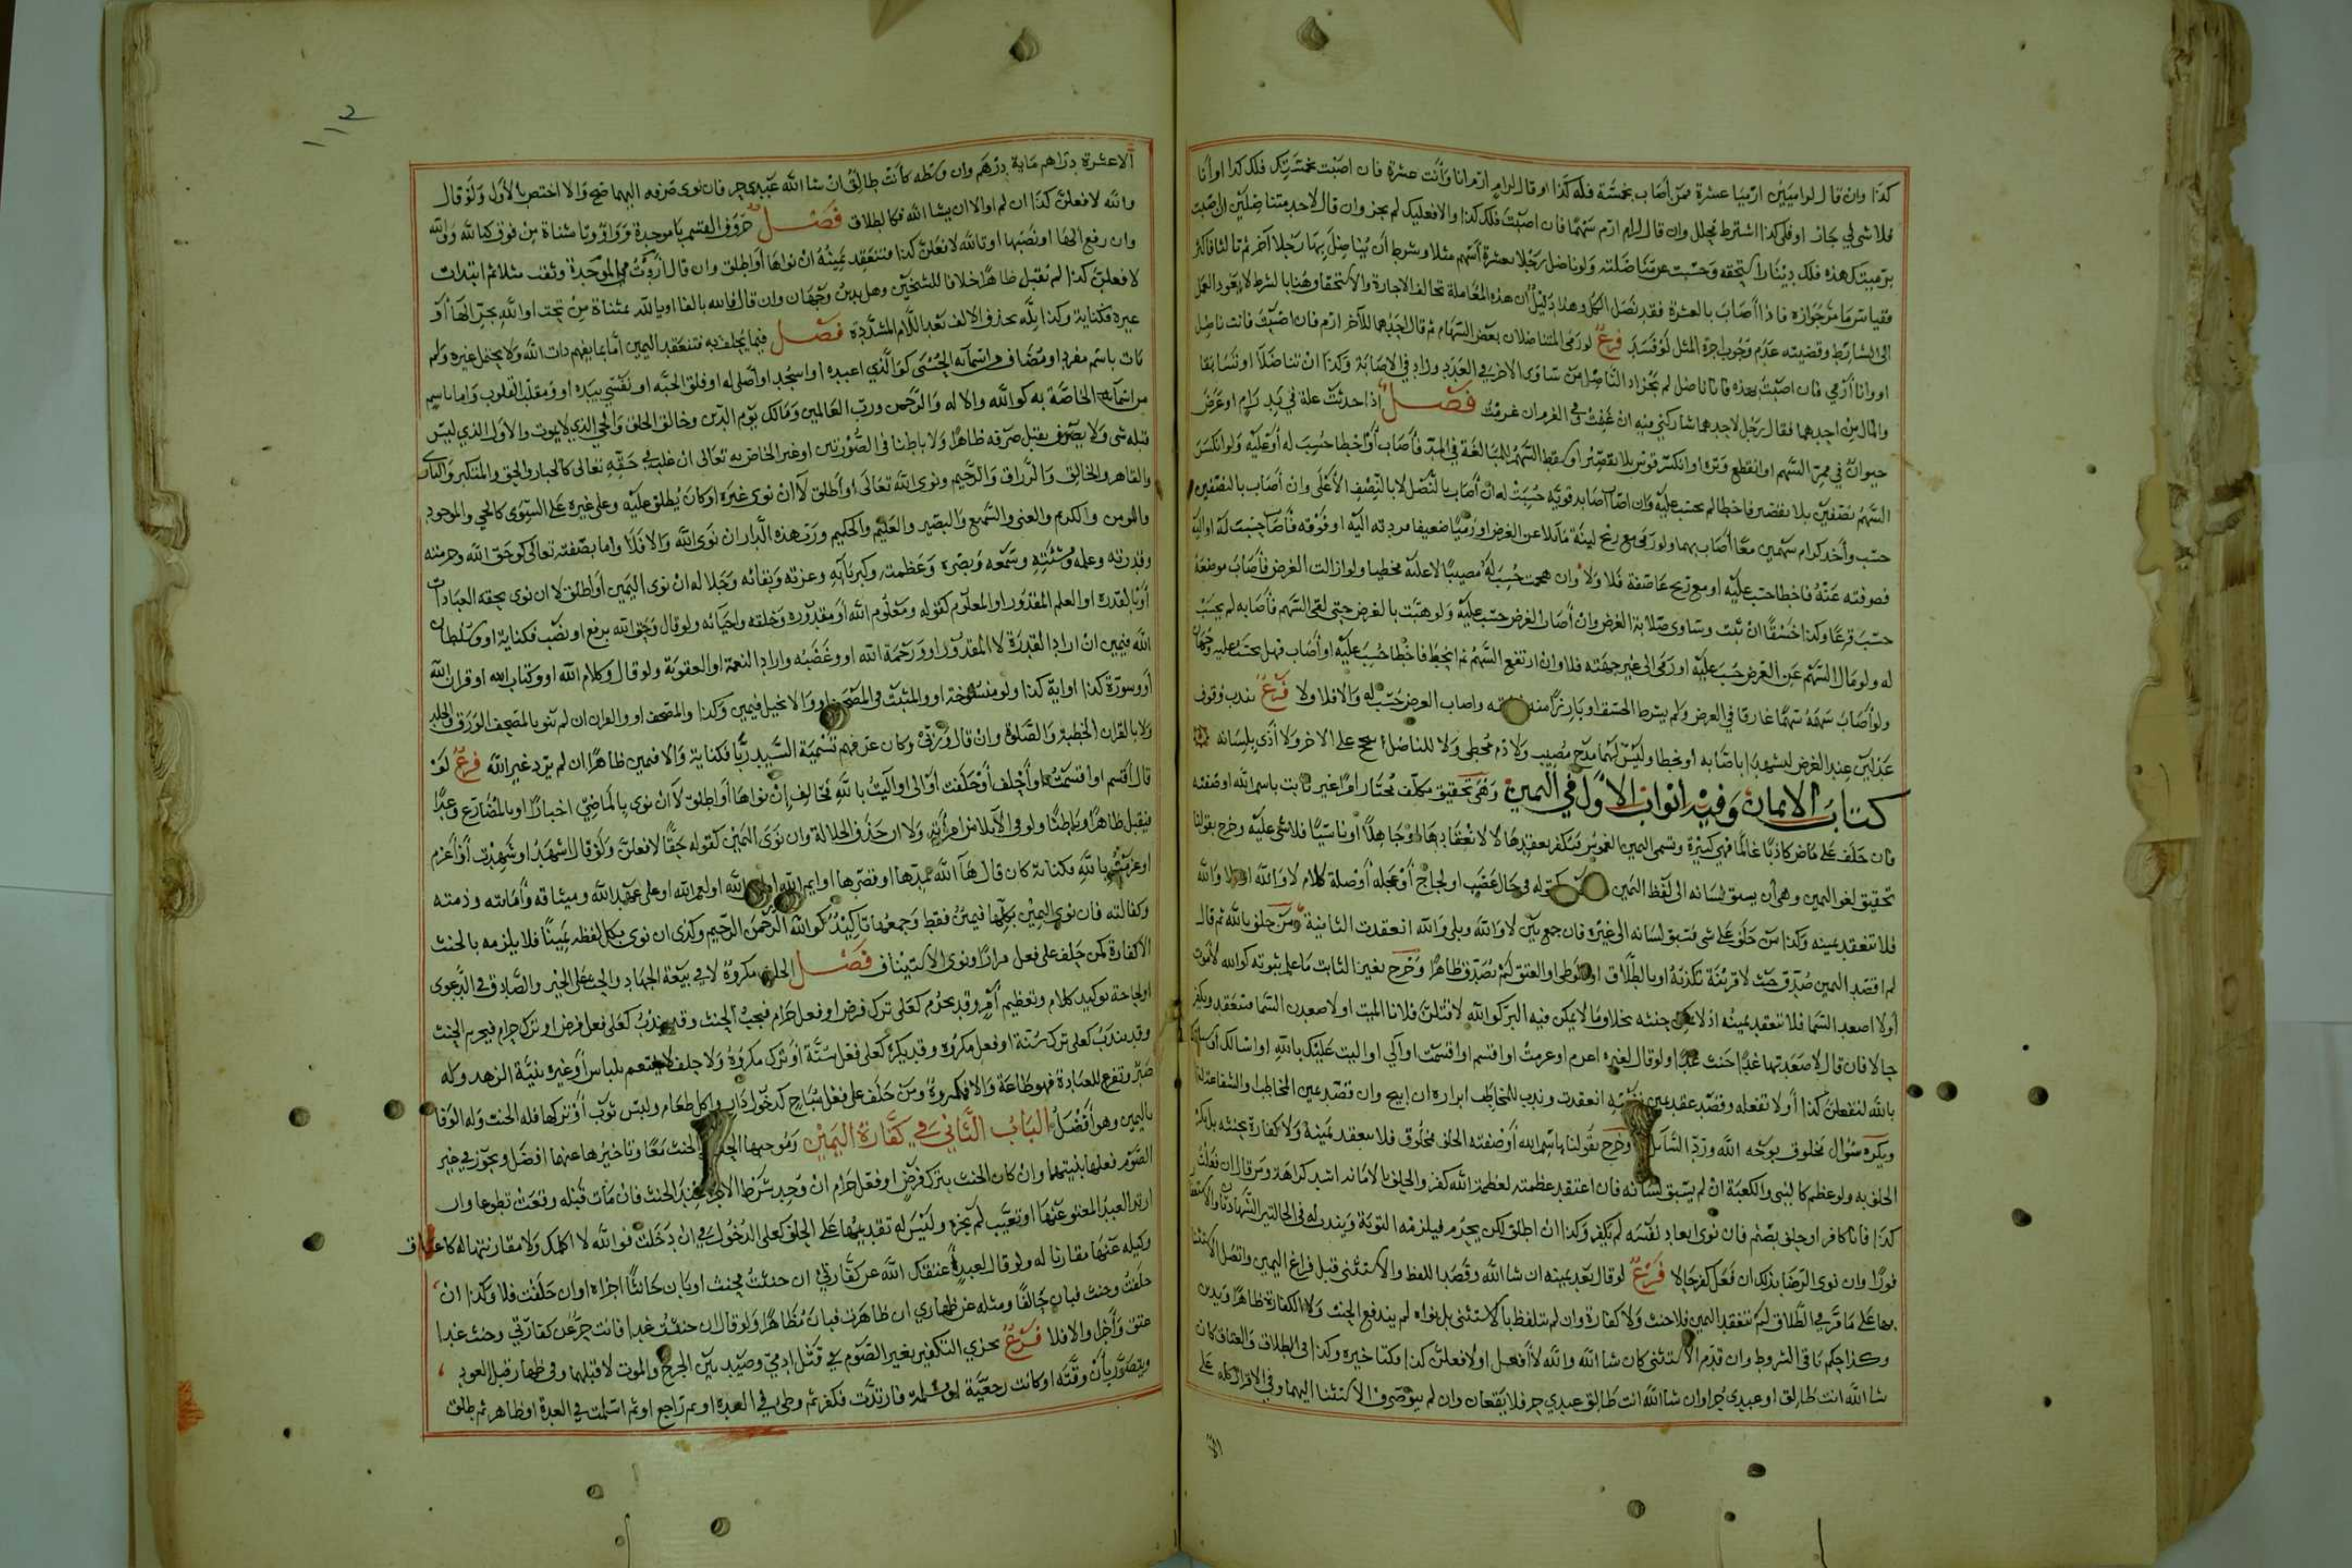 كذا وان قال لراميين ارميا عشرة فمن أصاب بخمسة فله كذا او قال لرام ارم انا وأنت عشرة فان اصبت بخمستك فلك كذا او أنا
فلا شي لي جاز او فلي كذا اشترط محلل وان قال لرام ارم سهما فان اصبت فلك كذا والا فعليك لم يجز وان قال لاحد متناضلين ان اصبت
برميتك هذه فلك دينار استحقه وحسبت عن مناضلته ولو ناضل رجلا بعشرة أسهم مثلا وشرط أن يناضل بها رجلا آخر ثم ثالثا فاكثر
فقياس ما مر جوازه فاذا أصاب بالعشرة فقد نضل الكل وهذا دليل ان هذه المعاملة تخالف الاجارة والاستحقاق هنا بالشرط لا بعود العمل
الى الشارط وقضيته عدم وجوب اجرة المثل لو فسد فرع لو رمى المتناضلان بعض السهام ثم قال احدهما للآخر ارم فان اصبت فانت ناضل
او وانا أرمي فان اصبت بهذه فانا ناضل لم يجز اذ الناضل من ساوى الآخر في العدد وزاد في الاصابة وكذا ان تناضلا او تسابقا
والمال من احدهما فقال رجل لاحدهما شاركني فيه ان غنمت في الغرم ان غرمت فصل اذا حدثت علة في يد رام او عرض
حيوان في ممر السهم او انقطع وتره او انكسر قوس بلا تقصير او سقط السهم للمبالغة في المد فأصاب أو أخطا حسب له أو عليه ولو انكسر
السهم نصفين بلا تقصير فاخطا لم يحسب عليه وان اصاب اصابة قوية حسبت له ان أصاب بالنصل لا بالنصف الأعلى وان أصاب بالنصفين
حسب واحد كرام سهمين معا أصاب بهما ولو رمى مع ريح لينة مائلا عن الغرض او رميا ضعيفا فردته اليه او قوته فأصاب حسبت له او اليه
فصرفته عنه فاخطا حسب عليه او مع ريح عاصفة فلا ولا وان هجمت حسب له مصيبا لا عليه مخطيا ولو ازالت الغرض فأصاب موضعه
حسب قرعا وكذا خسقا ان ثبت وساوى صلابة الغرض وان أصاب الغرض حسب عليه ولو هبت بالغرض حتى لقي السهم فأصابه لم يحسب
له ولو مال السهم عن الغرض حسب عليه او رمى الى غير جهته فلا وان ارتفع السهم ثم انحط فاخطا حسب عليه او أصاب فهل يحتسب عليه وجهان
ولو أصاب سهمه سهما غارقا في الغرض ولم يشرط الخسق او بارزا منه واصاب الغرض حسب له والا فلا ولا فرع يندب وقوف
عدلين عند الغرض ليشهدا باصابة أو بخطا وليس لهما مدح مصيب ولا ذم مخطي ولا للناضل تبجح على الاخر ولا أذى بلسانه
كتاب الايمان وفيه ابواب الاول في اليمين وهي تحقيق مكلف مختار امرا غير ثابت باسم الله او صفته
فان حلف على ماض كاذبا عالما فهي كبيرة وتسمى اليمين الغموس فتكفر بعقدها لا لانعقادها او جاهلا أو ناسيا فلا شي عليه وخرج بقولنا
تحقيق لغو اليمين وهي أن يسبق لسانه الى لفظ اليمين كقوله في حال غضب او لجاج أو عجلة أو صلة كلام لا والله او بلى والله
فلا تنعقد يمينه وكذا من حلف على شي فسبق لسانه الى غيره فان جمع بين لا والله وبلى والله انعقدت الثانية ومن حلف بالله ثم قال
لم اقصد اليمين صدق حيث لا قرينة تكذبه او بالطلاق او الوطي او العتق لم يصدق ظاهرا وخرج بغير الثابت ما علم ثبوته كوالله لأموت
أو لا اصعد السما فلا تنعقد يمينه اذ لا يمكن حنثه بخلاف ما لا يمكن فيه البر كوالله لاقتلن فلانا الميت او لاصعدن السما فتنعقد ويكفر
حالا فان قال لاصعدنها غدا حنث غدا ولو قال لغيره اعزم او عزمت او اقسم او اقسمت او آلي او اليت عليك بالله او اسالك او سالتك
بالله لتفعلن كذا أو لا تفعله وقصد عقد يمين نفسه انعقدت وندب للمخاطب ابراره ان ابيح وان قصد يمين المخاطب او الشفاعة فلا
ويكره سوال مخلوق بوجه الله ورد السائل وخرج بقولنا باسم الله أو صفته الحلف بمخلوق فلا ينعقد يمينه ولا كفارة بحنثه بل يكره
الحلف به ولو عظم كالنبي والكعبة ان لم يسبق لسانه فان اعتقد عظمته لعظمة الله كفر والحلف بالامانة اشد كراهة ومن قال ان فعلت
كذا فانا كافر او حلف بصنم فان نوى ابعاد نفسه لم يكفر وكذا ان اطلق لكن يحرم فيلزمه التوبة ويندب له في الحالتين الشهادتان والاستغفار
فورا وان نوى الرضا بذلك ان فعل كفر حالا فرع لو قال بعد يمينه ان شا الله وقصد اللفظ والاستثنى قبل فراغ اليمين واتصل الاستثنا
بها على ما مر في الطلاق لم تنعقد اليمين فلا حنث ولا كفارة وان لم يتلفظ بالاستثنى بل نواه لم يندفع الحنث ولا الكفارة ظاهرا ويدين
وكذا حكم باقي الشروط وان قدم الاستثنى كان شا الله والله لأفعلن او لا فعلن كذا فكتاخيره وكذا في الطلاق والعتاق كان
شا الله انت طالق او عبدي حر او ان شا الله انت طالق عبدي حر فلا يقعان وان لم ينو صرف الاستثنا اليهما وفي الاقرار كله علي
الا
١١٢
الا عشرة دراهم ماية درهم وان وسطه كأنت طالق ان شا الله عبدي حر فان نوى صرفه اليهما صح والا اختص بالأول ولو قال
والله لافعلن كذا ان لم او الا ان يشا الله فكالطلاق فصل حروف القسم با موحدة وواو وتا مثناة من فوق كبالله ووالله
وان رفع الها او نصبها او تالله لافعلن كذا فتنعقد يمينه ان نواها أو اطلق وان قال اردت في الموحدة وثقت مثلا ثم ابتدات
لافعلن كذا لم يقبل ظاهرا خلافا للشيخين وهل يدين وجهان وان قال فالله بالفا او يالله بمثناة من تحت او الله بجر الها أو
غيره فكناية وكذا بله بحذف الالف بعد اللام المشددة فصل فيما يحلف به فتنعقد اليمين اما بما يفهم ذات الله ولا يحتمل غيره ولم
يات باسم مفرد او مضاف من اسمائه الحسنى كوالذي اعبده او اسجد او أصلي له او فلق الحبة او نفسي بيده او ومقلب القلوب واما باسم
من اسمائه الخاصة به كوالله والاله والرحمن ورب العالمين ومالك يوم الدين وخالق الخلق والحي الذي لا يموت والاول الذي ليس
قبله شي ولا يصرف بقبل صرفه ظاهرا ولا باطنا في الصورتين او غير الخاص به تعالى ان غلب في حقه تعالى كالجبار والحق والمتكبر والبارى
والقاهر والخالق والرزاق والرحيم ونوى الله تعالى أو أطلق لا ان نوى غيره او كان يطلق عليه وعلى غيره على السوى كالحي والموجود
والمومن والكريم والغني والسميع والبصير والعليم والحكيم ورب هذه الدار ان نوى الله والا فلا واما بصفته تعالى كوحق الله وحرمته
وقدرته وعلمه ومشئته وسمعه وبصره وعظمته وكبريائه وعزته وبقائه وجلاله ان نوى اليمين أو اطلق لا ان نوى بحقه العبادات
أو بالقدرة او العلم المقدور او المعلوم كقوله ومعلوم الله أو مقدوره وخلقه واحيائه ولو قال وحق الله برفع او نصب فكناية او وسلطان
الله فيمين ان اراد القدرة لا المقدور او ورحمة الله او وغضبه واراد النعمة او العقوبة ولو قال وكلام الله او وكتاب الله او قران الله
أو وسورة كذا او اية كذا ولو منسوخة او والمثبت في المصحف او والانجيل فيمين وكذا والمصحف او والقران ان لم ينو بالمصحف الورق والجلد
ولا بالقران الخطبة والصلوة وان قال وربي وكان عرفهم تسمية السيد ربا فكناية والا فيمين ظاهرا ان لم يرد غير الله فرع لو
قال أقسم او أقسمت او أحلف أو حلفت أو آلي او آليت بالله فحالف إن نواها أو اطلق لا ان نوى بالماضي اخبارا او بالمضارع وعدا
فيقبل ظاهرا وباطنا ولو في الآيلا من امرأته ولا ان حذف الجلالة وان نوى اليمين كقوله حقا لافعلن ولو قال اشهد او شهدت أو أعزم
او عزمت بالله فكناية كان قال ها الله بمدها او قصرها او ايم الله او الله او لعمر الله او علي عهد الله وميثاقه وأمانته وذمته
وكفالته فان نوى اليمين بكلها فيمين فقط وجمعها تاكيد كوالله الرحمن الرحيم وكذى ان نوى بكل لفظه يمينا فلا يلزمه بالحنث
الا كفارة كمن حلف على فعل مرارا ونوى الاستيناف فصل الحلف مكروه لا في بيعة الجهاد والحث على الخير والصادق في الدعوى
او لحاجة توكيد كلام وتعظيم أمر وقد يحرم كعلى ترك فرض او فعل حرام فيجب الحنث وقد يندب كعلى فعل فرض او ترك حرام فيحرم الحنث
وقد يندب كعلى ترك سنة او فعل مكروه وقد يكره كعلى فعل سنة أو ترك مكروه ولا حلف لا يتنعم بلباس أو غيره بنية الزهد وله
صبر وتفرغ للعبادة فهو طاعة والا فمكروه ومن حلف على فعل مباح كدخول دار واكل طعام ولبس ثوب أو تركها فله الحنث وله الوفا
باليمين وهو أفضل الباب الثاني في كفارة اليمين وموجبها الحلف والحنث معا وتاخيرها عنهما افضل ويجوز في غير
الصوم فعلها بينهما وان كان الحنث بترك فرض او فعل حرام ان وجد شرط الاجزا عند الحنث فان مات قبله وقعت تطوعا وان
ارتد العبد المعتق عنها او تعيب لم يجزه وليس له تقديمها على الحلف كعلى الدخول في ان دخلت فوالله لا اكلمك ولا مقارنتها له كاعتاق
وكيله عنها مقارنا له ولو قال لعبده أعتقك الله عن كفارتي ان حنثت فحنث او بان حانثا اجزاه او ان حلفت فلا وكذا ان
حلفت وحنث فبان حالفا ومثله عن ظهاري ان ظاهرت فبان مظاهرا ولو قال ان حنثت غدا فانت حر عن كفارتي وحنث غدا
عتق وأجزا والا فلا فرع يجزي التكفير بغير الصوم في قتل ادمي وصيد بين الجرح والموت لا قبلهما وفي ظهار قبل العود
ويتصور بأن وقته او كانت رجعية او مسلمة فارتدت فكفر ثم وطي في العدة او ثم راجع او ثم اسلمت في العدة او ظاهر ثم طلق